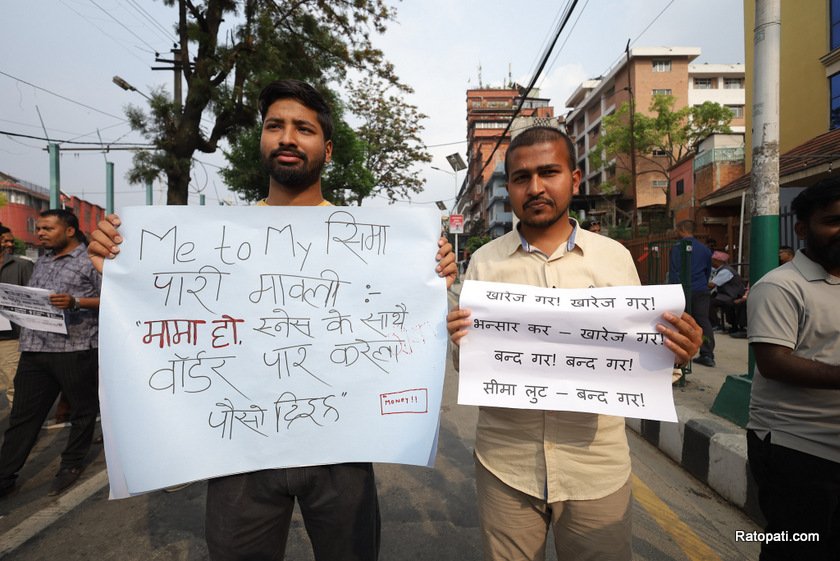 Me to My सिमा
पारी मावली :-
"मामा हो, स्नेस के साथै
वॉर्डर पार करेला
पौसो दिइह"
MONEY!!
खारेज गर! खारेज गर!
भन्सार कर – खारेज गर!
बन्द गर! बन्द गर!
सीमा लुट – बन्द गर!
Ratopati.com